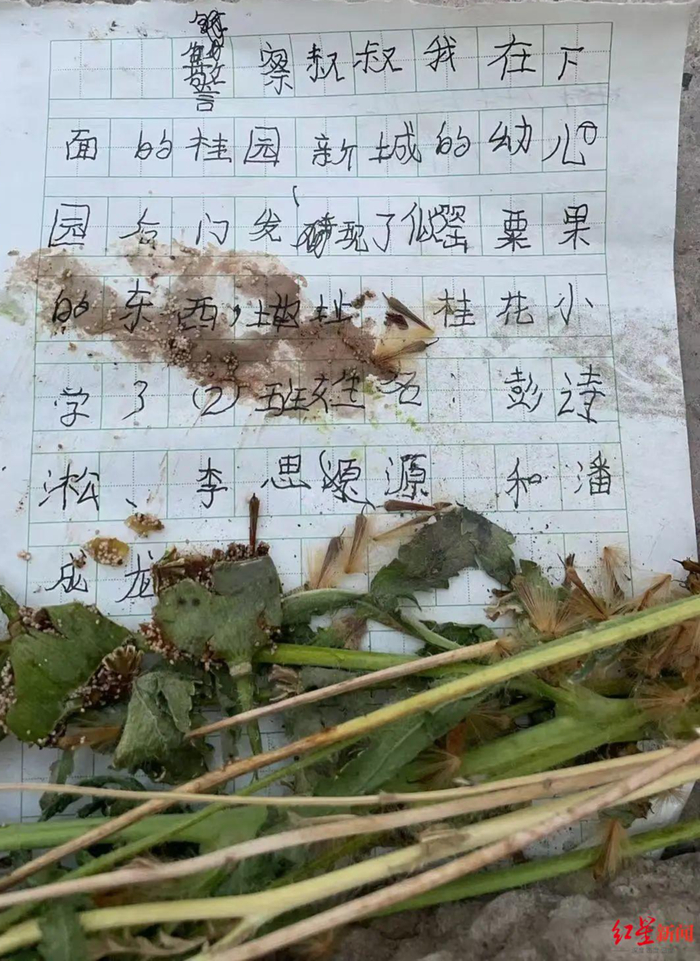 警察叔叔我在下
面的桂园新城的幼儿
园后门发现了似罂粟果
的东西,地址 桂花小
学3(2)班姓名 彭诗
淞、李思源源 和潘
成龙
红星新闻